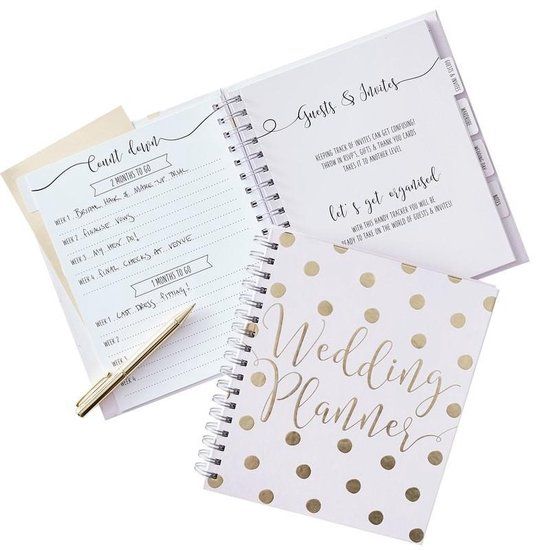 Count down
2 MONTHS TO GO
WEEK 1 BRIDAL HAIR & MAKE-UP TRIAL
WEEK 2 FINALISE VOWS
WEEK 3 MY HEN DO!
WEEK 4 FINAL CHECKS AT VENUE
1 MONTHS TO GO
WEEK 1 LAST DRESS FITTING!
WEEK 2
WEEK 3
WEEK 4
Guests & Invites
KEEPING TRACK OF INVITES CAN GET CONFUSING!
THROW IN RSVP'S, GIFTS & THANK YOU CARDS
TAKES IT TO ANOTHER LEVEL.
let's get organised
WITH THIS HANDY TRACKER YOU WILL BE
READY TO TAKE ON THE WORLD OF GUESTS & INVITES!
WEDDING DAY
NOTES
Wedding
Planner